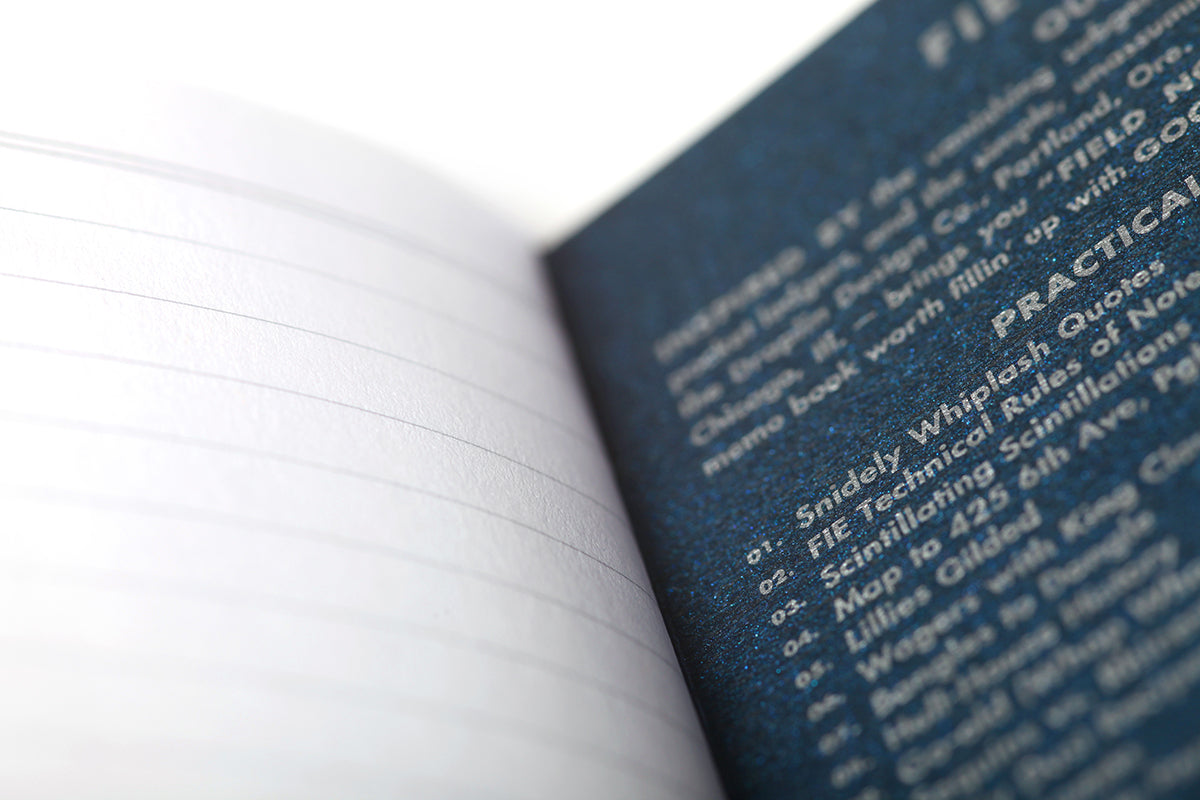 FIE
OU
INSPIRED BY the vanishing subgen
pocket ledgers, and the simple, unassumin
the Draplin Design Co., Portland, Ore.
Chicago, Ill. — brings you "FIELD NO
memo book worth fillin' up with GOO
PRACTICAL
01. Snidely Whiplash Quotes
02. FIE Technical Rules of Note
03. Scintillating Scintillations
04. Map to 425 6th Ave, Pg
05. Lillies Gilded
06. Wagers with King Cla
07. Bangles to Dangle
Hull-House History
Co-old